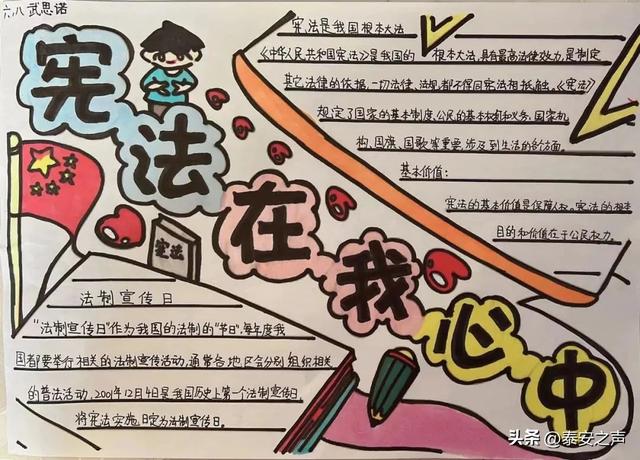 六.八 武思诺
宪法在我心中
宪法是我国根本大法
《中华人民共和国宪法》是我国的根本大法,具有最高法律效力,是制定
其它法律的依据,一切法律、法规都不得同宪法相抵触。《宪法》
规定了国家的基本制度,公民的基本权利和义务,国家机
构、国旗、国歌等重要涉及到生活的各方面。
基本价值:
宪法的基本价值是保障人权。宪法的根本
目的和价值在于公民权力。
宪法
法制宣传日
"法制宣传日"作为我国的法制的"节日",每年度我
国都要举行相关的法制宣传活动,通常各地区会分别组织相关
的普法活动,2001年12月4日是我国历史上第一个法制宣传日,
将宪法实施日定为法制宣传日。
头条 @泰安之声